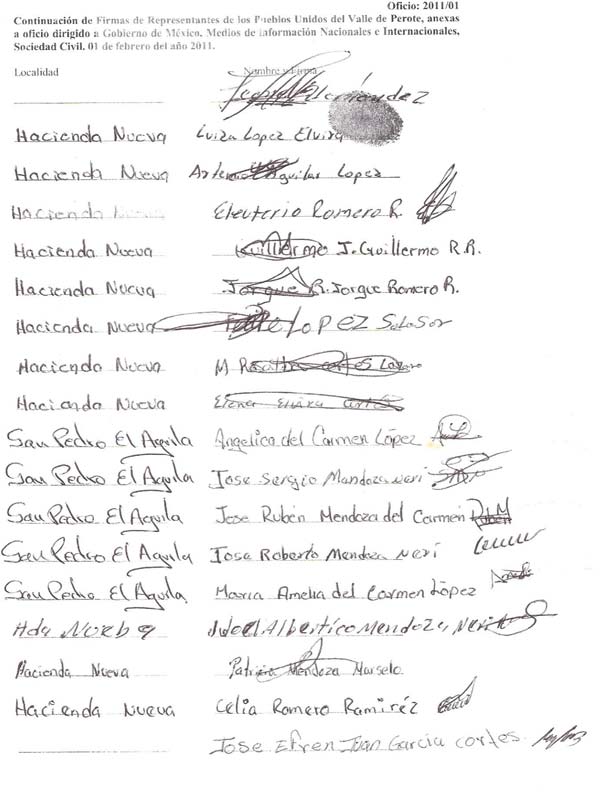 Oficio: 2011/01
Continuación de Firmas de Representantes de los Pueblos Unidos del Valle de Perote, anexas
a oficio dirigido a Gobierno de México. Medios de información Nacionales e Internacionales,
Sociedad Civil. 01 de febrero del año 2011.
Localidad Nombre y Firma
Hernandez
Hacienda Nueva Luiza Lopez Elvira
Hacienda Nueva Aguilar Lopez
Hacienda Nueva Eleuterio Romero R.
Hacienda Nueva Guillermo J. Guillermo R.R.
Hacienda Nueva Jorgue R. Jorgue Romero R.
Hacienda Nueva LOPEZ
Hacienda Nueva M
Hacienda Nueva Elena
San Pedro El Aguila Angelica del Carmen López
San Pedro El Aguila Jose Sergio Mendoza Neri
San Pedro El Aguila Jose Rubén Mendoza del Carmen Rubén
San Pedro El Aguila Jose Roberto Mendoza Neri
San Pedro El Aguila Maria Amelia del Carmen López
Hda Albertico Mendoza Neri
Hacienda Nueva Patricia Mendoza Marselo
Hacienda Nueva Celia Romero Ramiréz
Jose Efren Juan Garcia cortes.